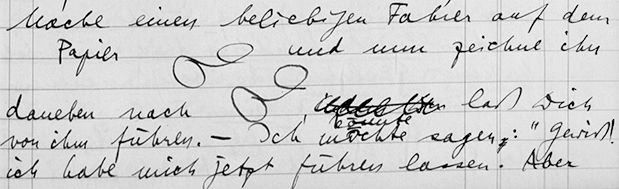 Mache einen beliebigen Fahrer auf dem
Papier und nun zeichne ihn
daneben nach, laß Dich
von ihm führen. – Ich möchte könnte sagen: "Gewiß!
ich habe mich jetzt führen lassen. Aber